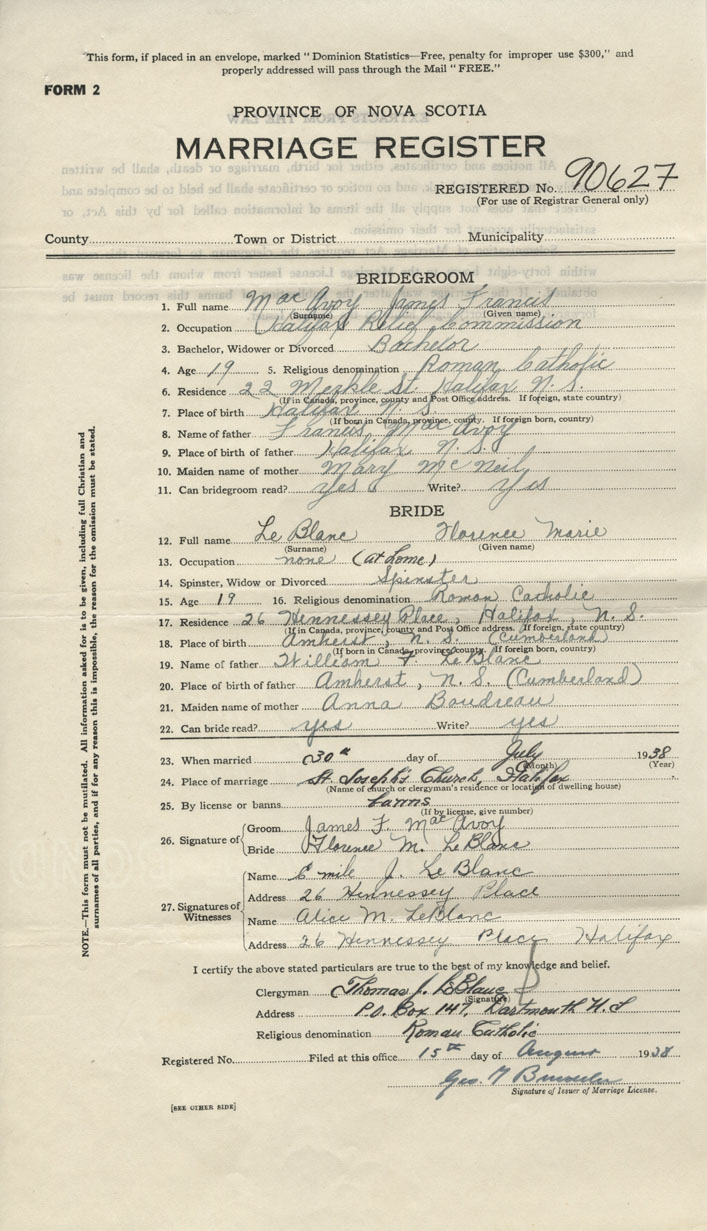 "This form, if placed in an envelope, marked "Dominion Statistics—Free, penalty for improper use $300," and
properly addressed will pass through the Mail "FREE."
FORM 2
PROVINCE OF NOVA SCOTIA
MARRIAGE REGISTER
REGISTERED No. 90627
(For use of Registrar General only)
County Town or District Municipality
BRIDEGROOM
1. Full name Mac Avoy James Francis
(Surname) (Given name)
2. Occupation Halifax Relief Commission
3. Bachelor, Widower or Divorced Bachelor
4. Age 19 5. Religious denomination Roman Catholic
6. Residence 22 Merkle St. Halifax N. S.
(If in Canada, province, county and Post Office address. If foreign, state country)
7. Place of birth Halifax N. S.
(If born in Canada, province, county. If foreign born, country)
8. Name of father Francis Mac Avoy
9. Place of birth of father Halifax N. S.
10. Maiden name of mother Mary McNeil
11. Can bridegroom read? yes Write? yes
BRIDE
12. Full name Le Blanc Florence Marie
(Surname) (Given name)
13. Occupation none (at home)
14. Spinster, Widow or Divorced Spinster
15. Age 19 16. Religious denomination Roman Catholic
17. Residence 26 Hennessey Place, Halifax, N. S.
(If in Canada, province, county and Post Office address. If foreign, state country)
18. Place of birth Amherst, N. S. (Cumberland)
(If born in Canada, province, county. If foreign born, country)
19. Name of father William F. LeBlanc
20. Place of birth of father Amherst, N. S. (Cumberland)
21. Maiden name of mother Anna Boudreau
22. Can bride read? yes Write? yes
23. When married 30th day of July 1938
(Month) (Year)
24. Place of marriage St Joseph's Church, Halifax
(Name of church or clergyman's residence or location of dwelling house)
25. By license or banns banns
(If by license, give number)
26. Signature of Groom James F. Mac Avoy
Bride Florence M. LeBlanc
27. Signatures of Witnesses
Name Emile J. LeBlanc
Address 26 Hennessey Place
Name Alice M. LeBlanc
Address 26 Hennessey Place Halifax
I certify the above stated particulars are true to the best of my knowledge and belief.
Clergyman Thomas J. LeBlanc
(Signature)
Address P.O. Box 147, Dartmouth N.S
Religious denomination Roman Catholic
Registered No. Filed at this office 15th day of August 1938
Geo. 
Signature of Issuer of Marriage License.
[SEE OTHER SIDE]
NOTE.—This form must not be mutilated. All information asked for is to be given, including full Christian and
surnames of all parties, and if for any reason this is impossible, the reason for the omission must be stated.